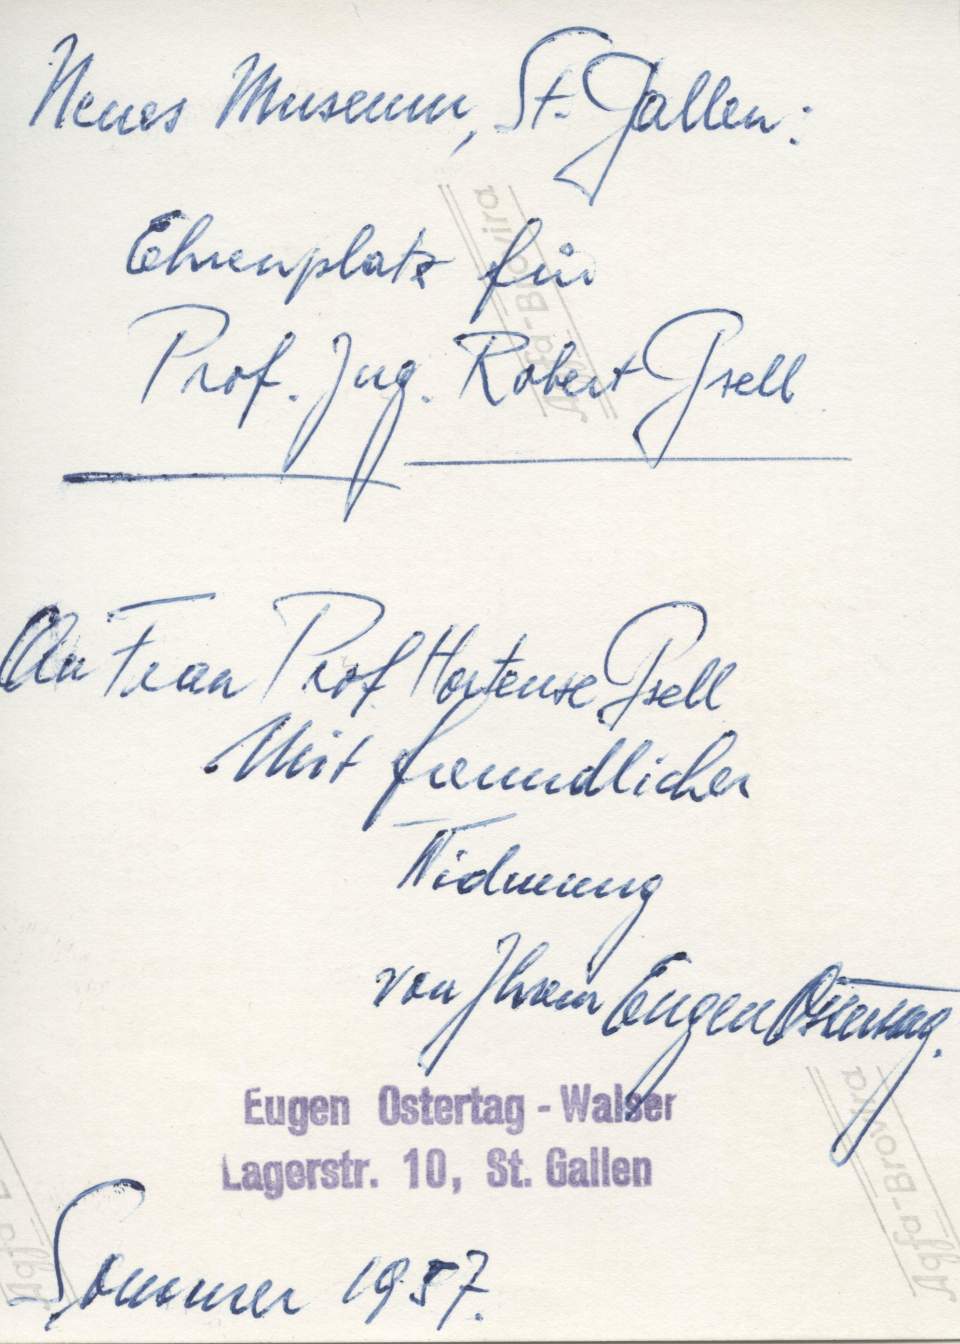 Neues Museum, St. Gallen:
Ehrenplatz für
Prof. Jng. Robert Gsell
An Frau Prof Hortense Gsell
Mit freundlicher
Widmung
von Ihrem Eugen Ostertag.
Eugen Ostertag - Walser
Lagerstr. 10, St. Gallen
Sommer 1957.
Agfa-Brovira
Agfa-Brovira
Agfa